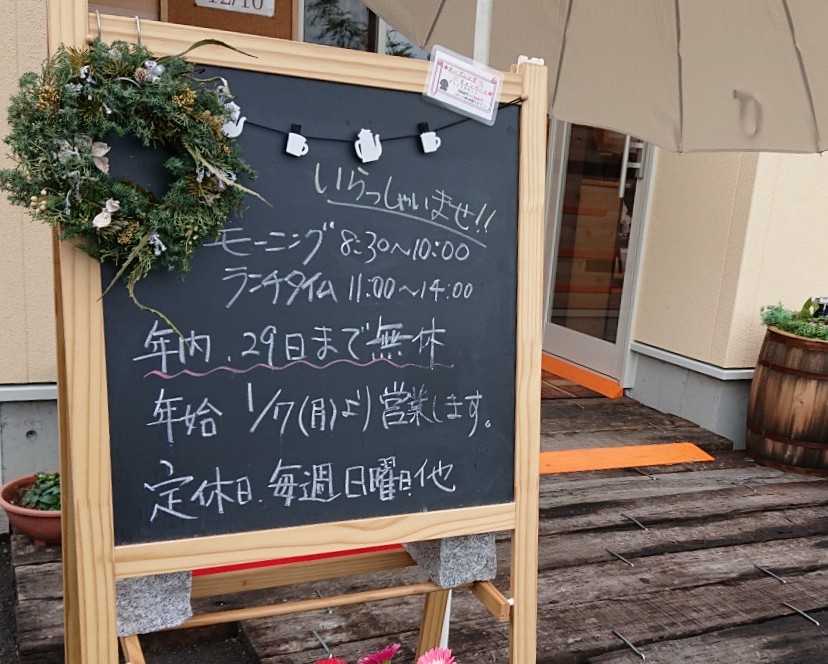 12/10
いらっしゃいませ!!
モーニング 8:30〜10:00
ランチタイム 11:00〜14:00
年内、29日まで無休
年始 1/7(月)より営業します。
定休日、毎週日曜日、他